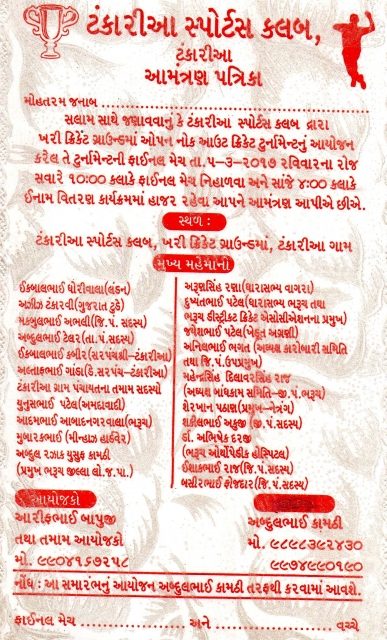 ટંકારીઆ સ્પોર્ટસ કલબ,
ટંકારીઆ
આમંત્રણ પત્રિકા
મોહતરમ જનાબ
સલામ સાથે જણાવવાનું કે ટંકારીઆ સ્પોર્ટસ કલબ દ્વારા
ખરી ક્રિકેટ ગ્રાઉન્ડમાં ઓપન નોક આઉટ ક્રિકેટ ટુર્નામેન્ટનું આયોજન
કરેલ તે ટુર્નામેન્ટની ફાઈનલ મેચ તા.૫-૩-૨૦૧૭ રવિવારના રોજ
સવારે ૧૦:૦૦ કલાકે ફાઈનલ મેચ નિહાળવા અને સાંજે ૪:૦૦ કલાકે
ઈનામ વિતરણ કાર્યક્રમમાં હાજર રહેવા આપને આમંત્રણ આપીએ છીએ.
સ્થળ :
ટંકારીઆ સ્પોર્ટસ કલબ, ખરી ક્રિકેટ ગ્રાઉન્ડમાં, ટંકારીઆ ગામ
મુખ્ય મહેમાનો
ઈકબાલભાઈ ધોરીવાલા(લંડન)
અઝીઝ ટંકારવી(ગુજરાત ટુડે)
મકબુલભાઈ અભલી(જિ.પં. સદસ્ય)
અબ્દુલભાઈ ટેલર(તા.પં. સદસ્ય)
ઈકબાલભાઈ કબીર(સરપંચશ્રી-ટંકારીઆ)
અલ્તાફભાઈ ગાંડા(ડે.સરપંચ-ટંકારીઆ)
ટંકારીઆ ગ્રામ પંચાયતના તમામ સદસ્યો
યુનુસભાઈ પટેલ(અમદાવાદી)
આદમભાઈ આબાદનગરવાલા(ભરૂચ)
મુબારકભાઈ (મીન્હાઝ હાર્ડવેર)
અબ્દુલ રઝાક યુસુફ કામઠી
(પ્રમુખ ભરૂચ જીલ્લા લો.જ.પા.)
અરૂણસિંહ રણા(ધારાસભ્ય વાગરા)
દુષ્યંતભાઈ પટેલ(ધારાસભ્ય ભરૂચ તથા
ભરૂચ ડીસ્ટ્રીકટ ક્રિકેટ એસોસીએશનના પ્રમુખ)
જયેશભાઈ પટેલ(ખેડૂત અગ્રણી)
અનિલભાઈ ભગત (અધ્યક્ષ કારોબારી સમિતિ
તથા જિ.પં.ઉપપ્રમુખ)
મહેન્દ્રસિંહ દિલાવરસિંહ રાજ
(અધ્યક્ષ બાંધકામ સમિતિ-જી.પં.ભરૂચ)
શેરખાન પઠાણ(પ્રમુખ-નેત્રંગ)
શકીલભાઈ અકુજી (જી.પં.સદસ્ય)
ડૉ. અભિષેક દરજી
(ભરૂચ ઓર્થોપેડીક હોસ્પિટલ)
ઈશાકભાઈ રાજ(જિ.પં.સદસ્ય)
બસીરભાઈ ફોજદાર(જિ.પં.સદસ્ય)
આયોજકો
આરીફભાઈ બાપુજી
તથા તમામ આયોજકો
મો. ૯૯૦૪૧૬૭૨૫૮
અબ્દુલભાઈ કામઠી
મો. ૯૮૯૮૩૯૨૪૩૦
૯૯૭૪૯૯૦૧૯૦
નોંધ : આ સમારંભનું આયોજન અબ્દુલભાઈ કામઠી તરફથી કરવામાં આવશે.
ફાઈનલ મેચ અને વચ્ચે